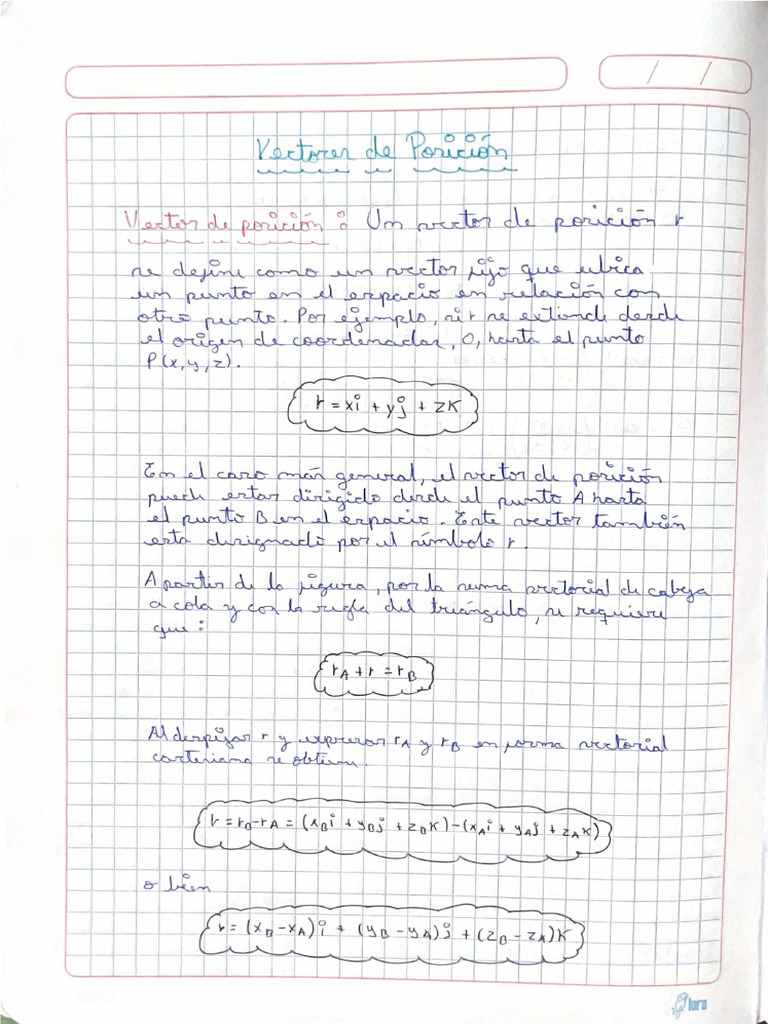 Vectores de Posición
Vector de posición : Un vector de posición r
se define como un vector fijo que ubica
un punto en el espacio en relación con
otro punto. Por ejemplo, si r se extiende desde
el origen de coordenadas, O, hasta el punto
P(x,y,z).
r = xi + yj + zk
En el caso más general, el vector de posición
puede estar dirigido desde el punto A hasta
el punto B en el espacio. Este vector también
esta designado por el símbolo r.
A partir de la figura, por la suma vectorial de cabeza
a cola y con la regla del triángulo, se requiere
que:
rA + r = rB
Al despejar r y expresar rA y rB en forma vectorial
cartesiana se obtiene.
r = rB - rA = (xBi + yBj + zBk) - (xAi + yAj + zAk)
o bien
r = (xB - xA)i + (yB - yA)j + (zB - zA)k
loro